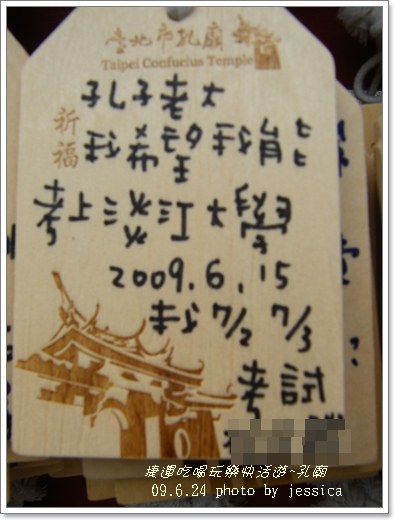 臺北市孔廟
Taipei Confucius Temple
祈福
孔子老大
我希望我能
考上淡江大學
2009.6.15
我7/2 7/3
考試
捷運吃喝玩樂快活遊~孔廟
09.6.24 photo by jessica